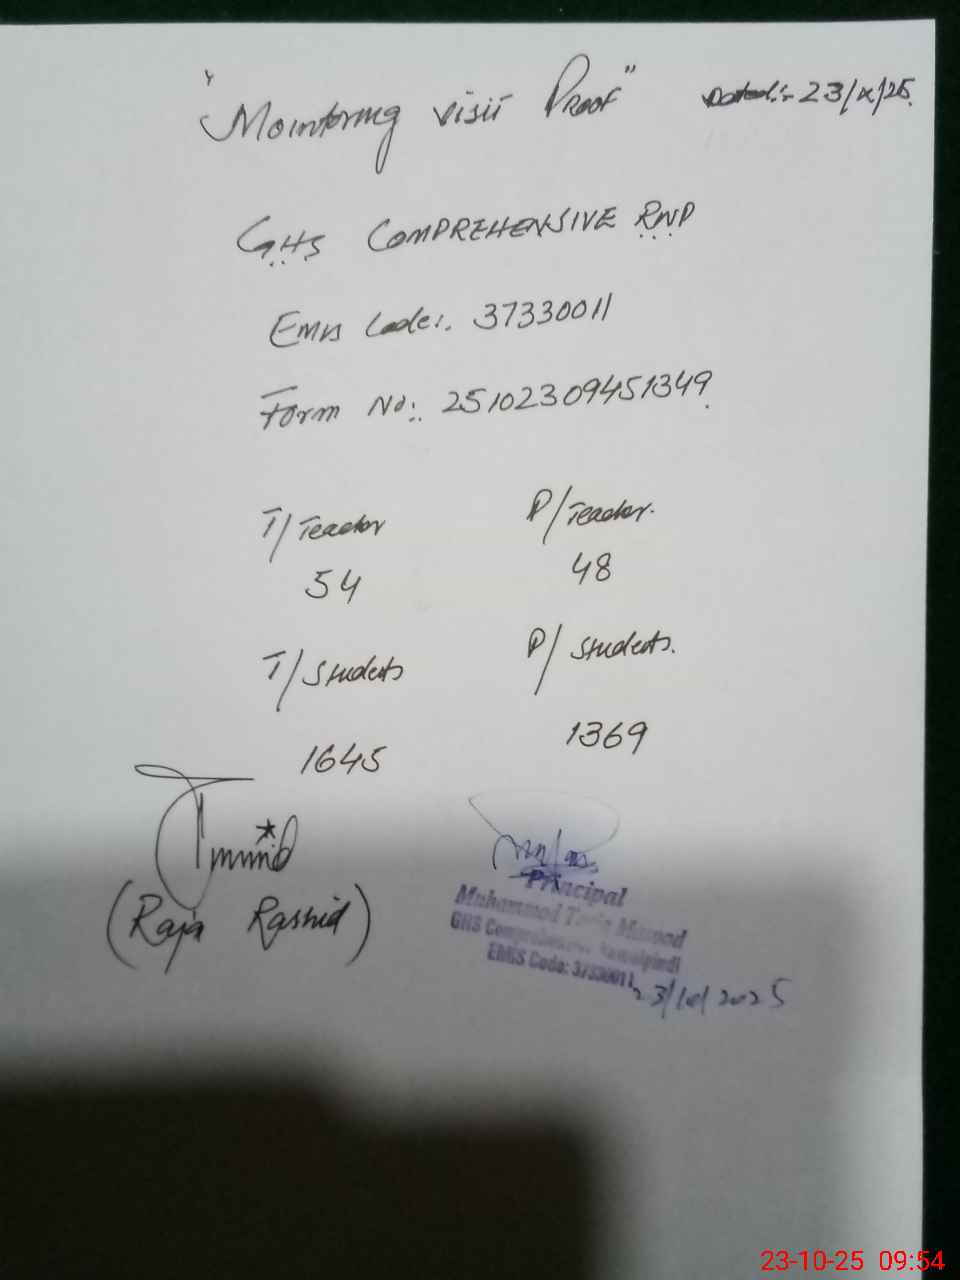 "Monitoring visit Proof" Dated:- 23/x/25.
GHS COMPREHENSIVE RWP
Emis Code:. 37330011
Form No:. 25102309451349.
T/Teacher P/Teacher.
54 48
T/Students P/Students.
1645 1369
(Raja Rashid)
Principal
Muhammad Masood
GHS Comprehensive Rawalpindi
EMIS Code: 37330011
23/10/2025
23-10-25 09:54